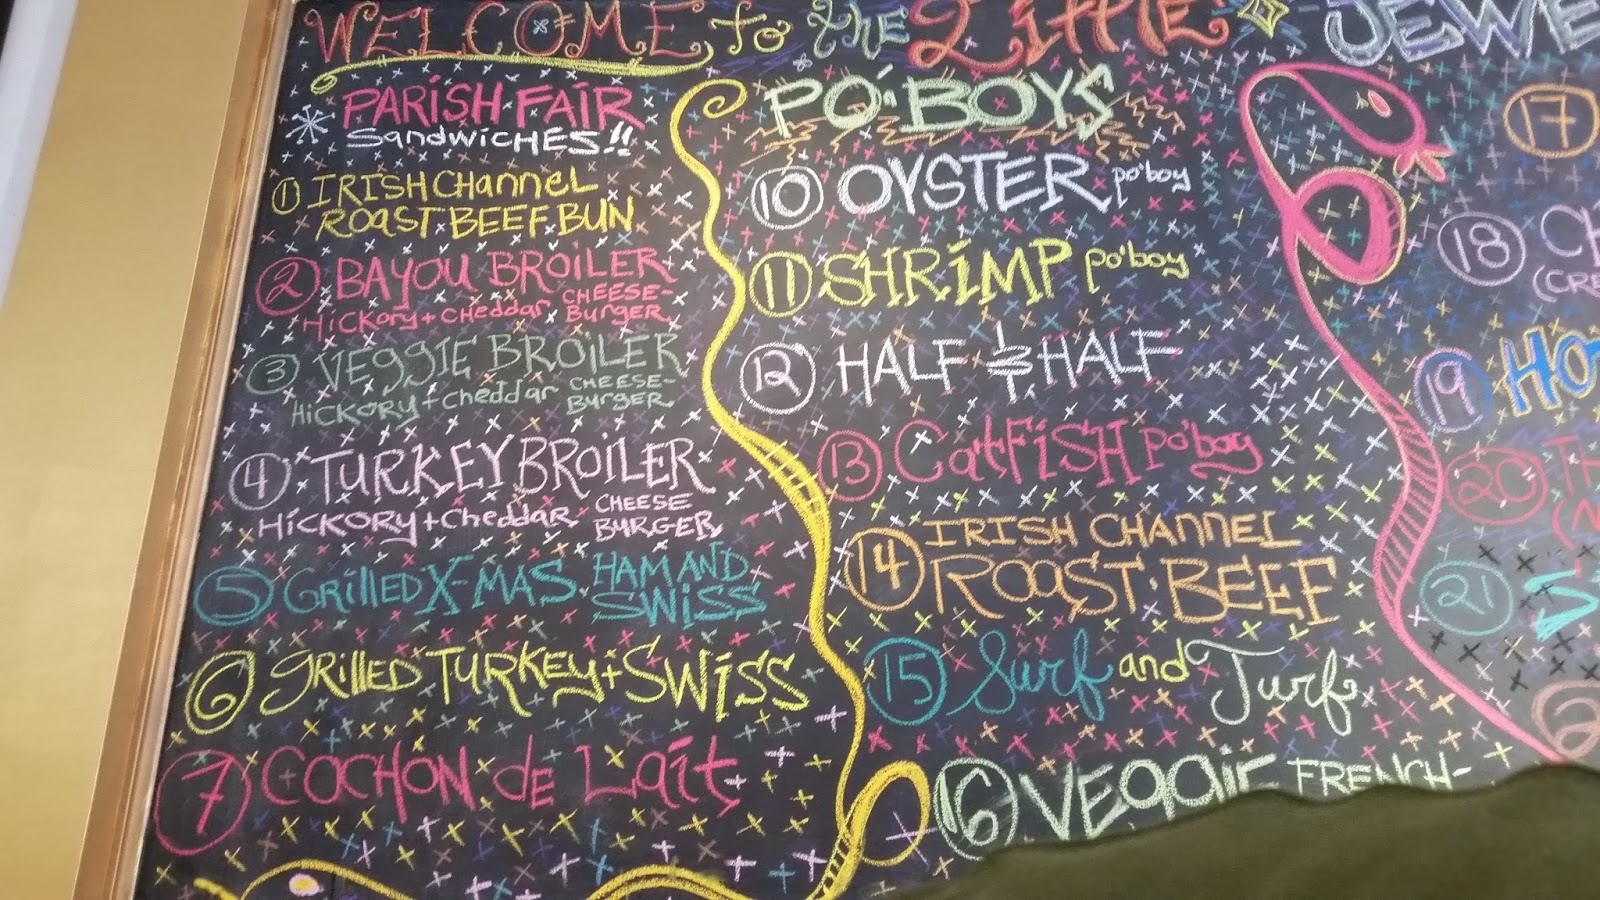 WELCOME to the Little
PARISH FAIR
SANDWICHES!!
1 IRISH CHANNEL
ROAST BEEF BUN
2 BAYOU BROILER
HICKORY + CHEDDAR CHEESE-
BURGER
3 VEGGIE BROILER
HICKORY + CHEDDAR CHEESE-
BURGER
4 TURKEY BROILER
HICKORY + CHEDDAR CHEESE
BURGER
5 GRILLED X-MAS HAM AND
SWISS
6 GRILLED TURKEY + SWISS
7 COCHON de Lait
PO'BOYS
10 OYSTER po'boy
11 SHRIMP po'boy
12 HALF & HALF
13 CatFiSH po'boy
14 IRISH CHANNEL
ROAST BEEF
15 Surf and Turf
16 VEGGIE FRENCH-
17
18
19
20
21